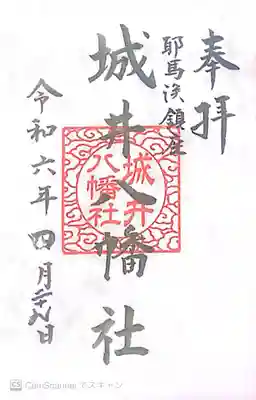 奉拝
耶馬渓鎮座
城井八幡社
城井
八幡社
令和六年四月二十八日
CS CamScanner でスキャン